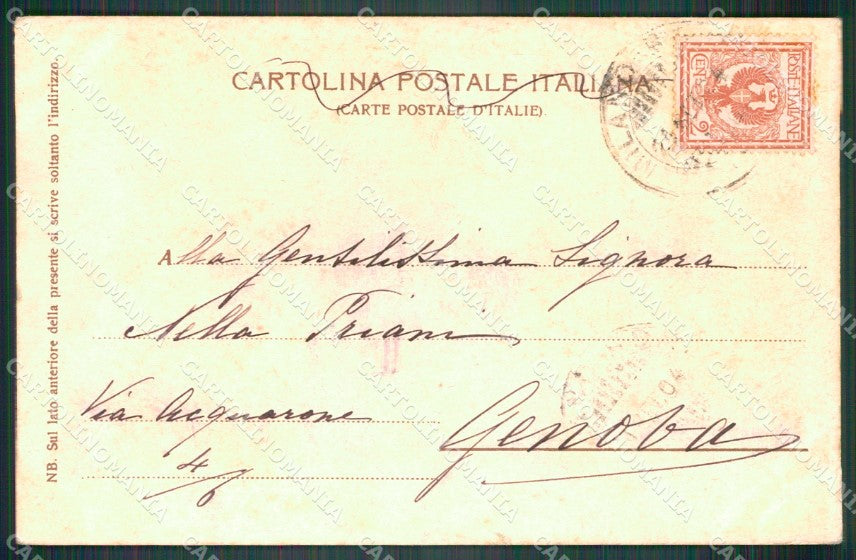 CARTOLINA POSTALE ITALIANA
(CARTE POSTALE D'ITALIE)
POSTE·ITALIANE
CEN·2
NB. Sul lato anteriore della presente si scrive soltanto l'indirizzo.
Alla Gentilissima Signora
Nella Priani
Via Acquarone
4
Genova
CARTOLINOMANIA